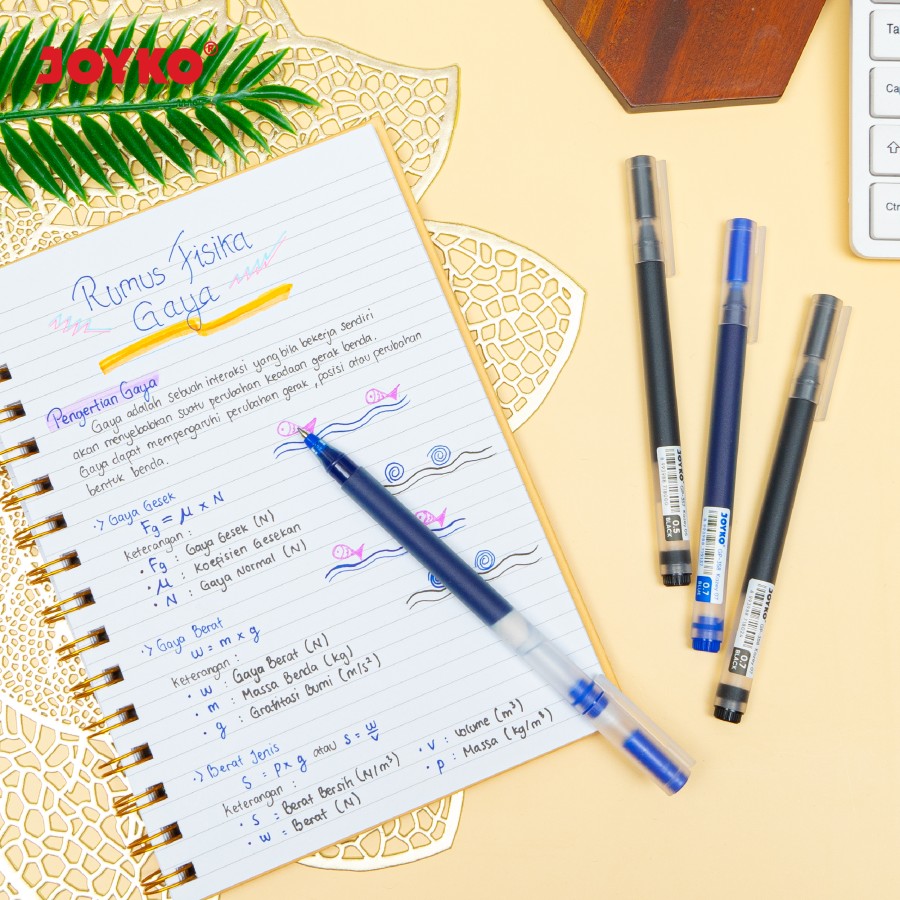 JOYKO®
Rumus Fisika
Gaya
Pengertian Gaya
Gaya adalah sebuah interaksi yang bila bekerja sendiri
akan menyebabkan suatu perubahan keadaan gerak benda.
Gaya dapat mempengaruhi perubahan gerak, posisi atau perubahan
bentuk benda.
·> Gaya Gesek
Fg = μ x N
Keterangan :
• Fg : Gaya Gesek (N)
• μ : Koefisien Gesekan
• N : Gaya Normal (N)
·> Gaya Berat
w = m x g
Keterangan :
• w : Gaya Berat (N)
• m : Massa Benda (kg)
• g : Grafitasi Bumi (m/s²)
·> Berat Jenis
S = p x g atau S = w/v
Keterangan :
• S : Berat Bersih (N/m³)
• w : Berat (N)
• v : Volume (m³)
• p : Massa (kg/m³)
JOYKO
0.5
BLACK
JOYKO
0.7
BLUE
JOYKO
0.7
BLACK
Ta
Cap
Ctr